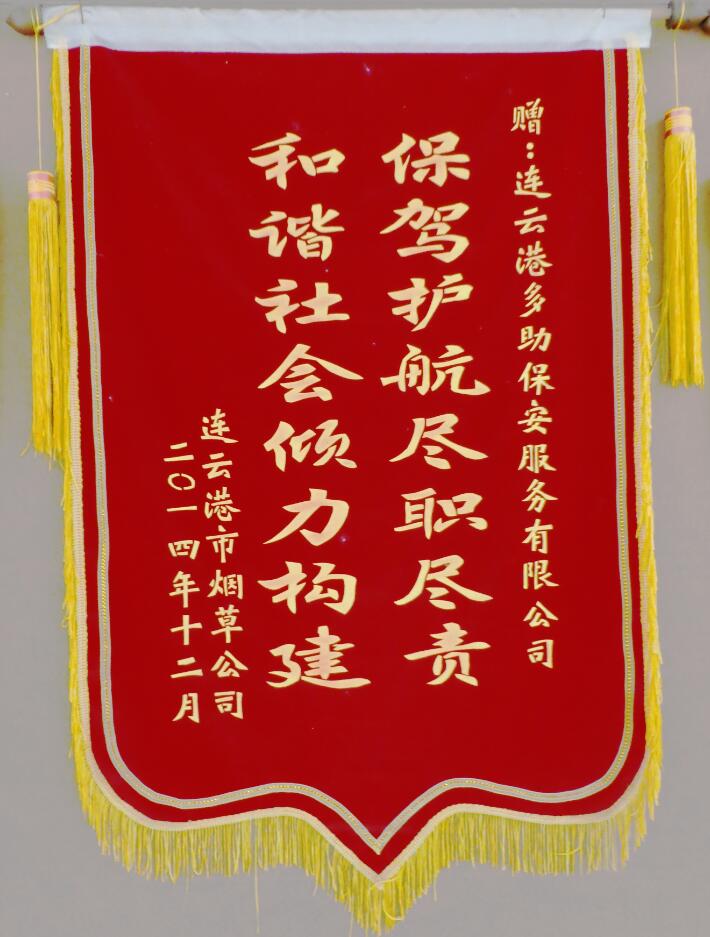 赠：连云港多助保安服务有限公司
保驾护航尽职尽责
和谐社会倾力构建
连云港市烟草公司
二〇一四年十二月